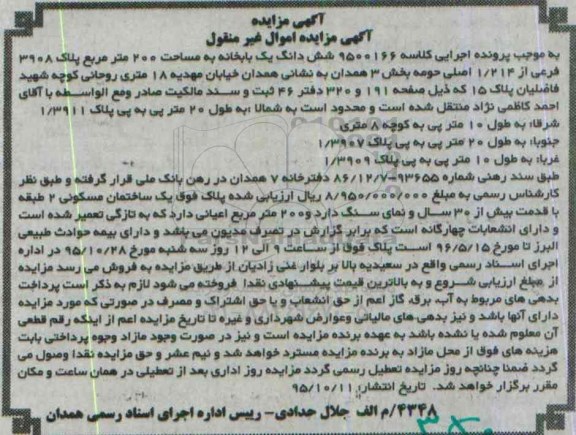 آگهی مزایده
آگهی مزایده اموال غیر منقول
به موجب پرونده اجرایی کلاسه ۹۵۰۰۱۶۶ شش دانگ یک بابخانه به مساحت ۲۰۰ متر مربع پلاک ۳۹۰۸
فرعی از ۱/۲۱۴ اصلی حومه بخش ۳ همدان به نشانی همدان خیابان مهدیه ۱۸ متری روحانی کوچه شهید
فاضلیان پلاک ۱۵ که ذیل صفحه ۱۹۱ و ۳۲۰ دفتر ۴۶ ثبت و سند مالکیت صادر ومع الواسطه با آقای
احمد کاظمی نژاد منتقل شده است و محدود است به شمالا :به طول ۲۰ متر پی به پی پلاک ۱/۳۹۱۱
شرقا: به طول ۱۰ متر پی به کوچه ۸ متری
جنوبا: به طول ۲۰ متر پی به پی پلاک ۱/۳۹۰۷
غربا: به طول ۱۰ متر پی به پی پلاک ۱/۳۹۰۹
طبق سند رهنی شماره ۹۳۶۵۵-۸۶/۱۲/۷ دفترخانه ۷ همدان در رهن بانک ملی قرار گرفته و طبق نظر
کارشناس رسمی به مبلغ ۸/۹۵۰/۰۰۰/۰۰۰ ریال ارزیابی شده پلاک فوق یک ساختمان مسکونی ۲ طبقه
با قدمت بیش از ۳۰ سال و نمای سنگ دارد و۲۰۰ متر مربع اعیانی دارد که به تازگی تعمیر شده است
و دارای انشعابات چهارگانه است که برابر گزارش در تصرف مدیون می باشد و دارای بیمه حوادث طبیعی
البرز تا مورخ ۹۶/۵/۱۵ است پلاک فوق از ساعت ۹ الی ۱۲ روز سه شنبه مورخ ۹۵/۱۰/۲۸ در اداره
اجرای اسناد رسمی واقع در سعیدیه بالا بر بلوار غنی زادیان از طریق مزایده به فروش می رسد مزایده
از مبلغ ارزیابی شروع و به بالاترین قیمت پیشنهادی نقدا فروخته می شود لازم به ذکر است پرداخت
بدهی های مربوط به آب، برق، گاز اعم از حق انشعاب و یا حق اشتراک و مصرف در صورتی که مورد مزایده
دارای آنها باشد و نیز بدهی های مالیاتی وعوارض شهرداری و غیره تا تاریخ مزایده اعم از اینکه رقم قطعی
آن معلوم شده یا نشده باشد به عهده برنده مزایده است و نیز در صورت وجود مازاد وجوه پرداختی بابت
هزینه های فوق از محل مازاد به برنده مزایده مسترد خواهد شد و نیم عشر و حق مزایده نقدا وصول می
گردد ضمنا چنانچه روز مزایده تعطیل رسمی گردد مزایده روز اداری بعد از تعطیلی در همان ساعت و مکان
مقرر برگزار خواهد شد. تاریخ انتشار: ۹۵/۱۰/۱۱
۴۳۴۸/م الف جلال حدادی- رییس اداره اجرای اسناد رسمی همدان